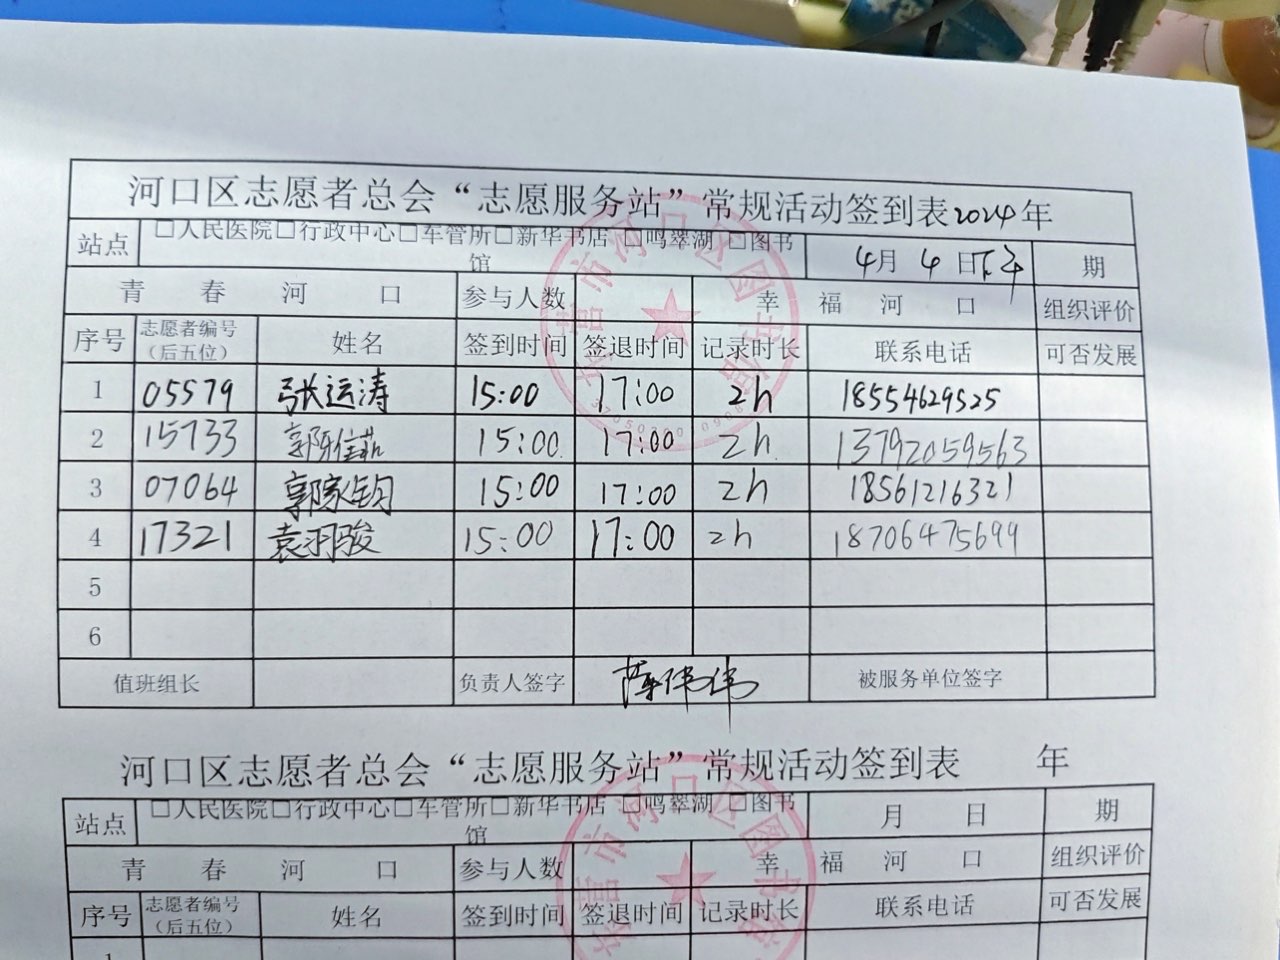 河口区志愿者总会“志愿服务站”常规活动签到表2024年
站点 □人民医院□行政中心□车管所□新华书店 □鸣翠湖 □图书馆 4月 4 日下午 期
青 春 河 口 参与人数 幸 福 河 口 组织评价
序号 志愿者编号（后五位） 姓名 签到时间 签退时间 记录时长 联系电话 可否发展
1 05579 张运涛 15:00 17:00 2h 18554629525
2 15733 15:00 17:00 2h 13792059563
3 07064 郭家钧 15:00 17:00 2h 18561216321
4 17321 袁羽骏 15:00 17:00 2h 18706475699
5
6
值班组长 负责人签字 陈伟伟 被服务单位签字
河口区志愿者总会“志愿服务站”常规活动签到表 年
站点 □人民医院□行政中心□车管所□新华书店 □鸣翠湖 □图书馆 月 日 期
青 春 河 口 参与人数 幸 福 河 口 组织评价
序号 志愿者编号（后五位） 姓名 签到时间 签退时间 记录时长 联系电话 可否发展
1